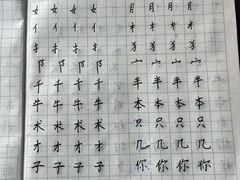 女 女 女 女 月 月 月 月
亻 亻 亻 亻 扌 扌 扌 扌
扌 扌 扌 扌 犭 犭 犭 犭
阝 阝 阝 阝 宀 宀 宀 宀
千 千 千 千 半 半 半 半
牛 牛 牛 牛 本 本 本 本
术 术 术 术 只 只 只 只
才 才 才 才 几 几 几 几
子 子 子 子 你 你 你 你